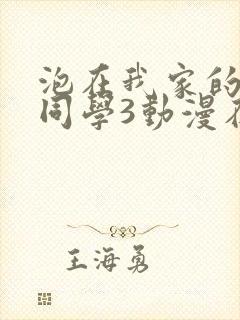 泡在我家的
同學3動漫在
王海勇